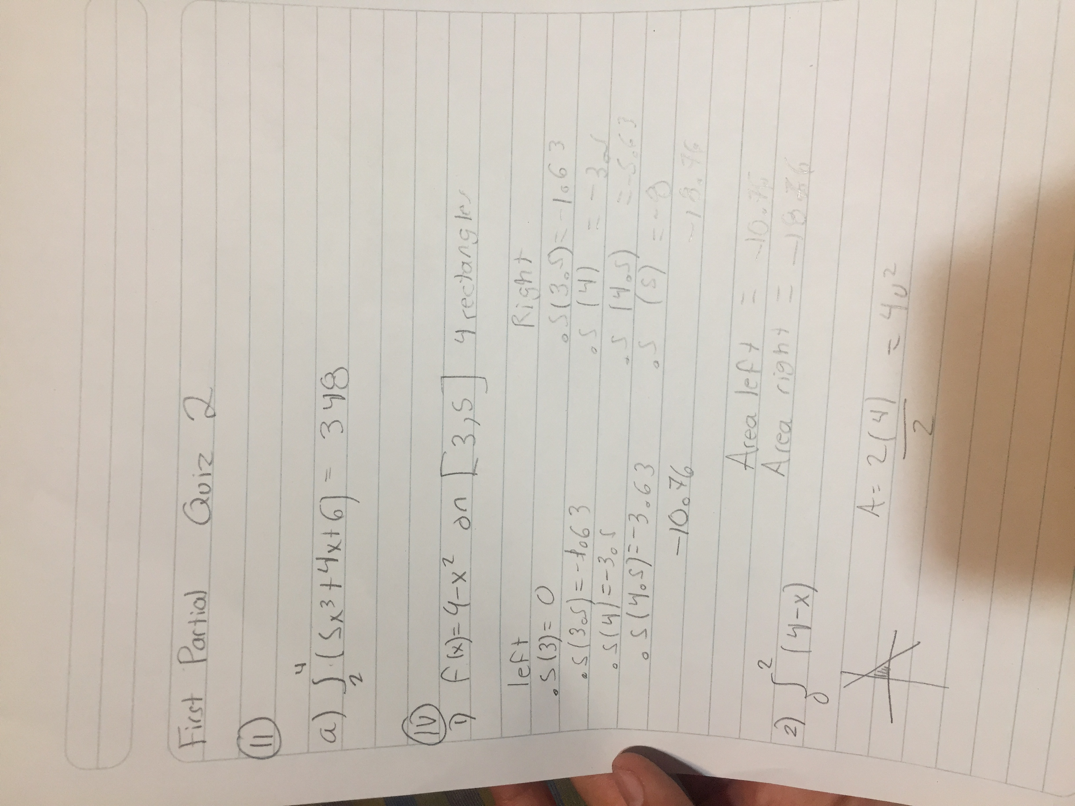 First Partial Quiz 2
II
a) ∫₂⁴ (5x³+4x+6) = 348
IV
1) f(x)=9-x² on [3,5] 4 rectangles
left Right
.5(3)=0 .5(3.5)=-1.63
.5(3.5)=-1.63 .5(4) =-3.5
.5(4)=-3.5 .5(4.5) =-5.63
.5(4.5)=-5.63 .5(5)=-8
-10.76 -18.76
Area left = -10.75
Area right = -18.76
2) ∫₀² (4-x) A= 2(4)/2 = 4u²